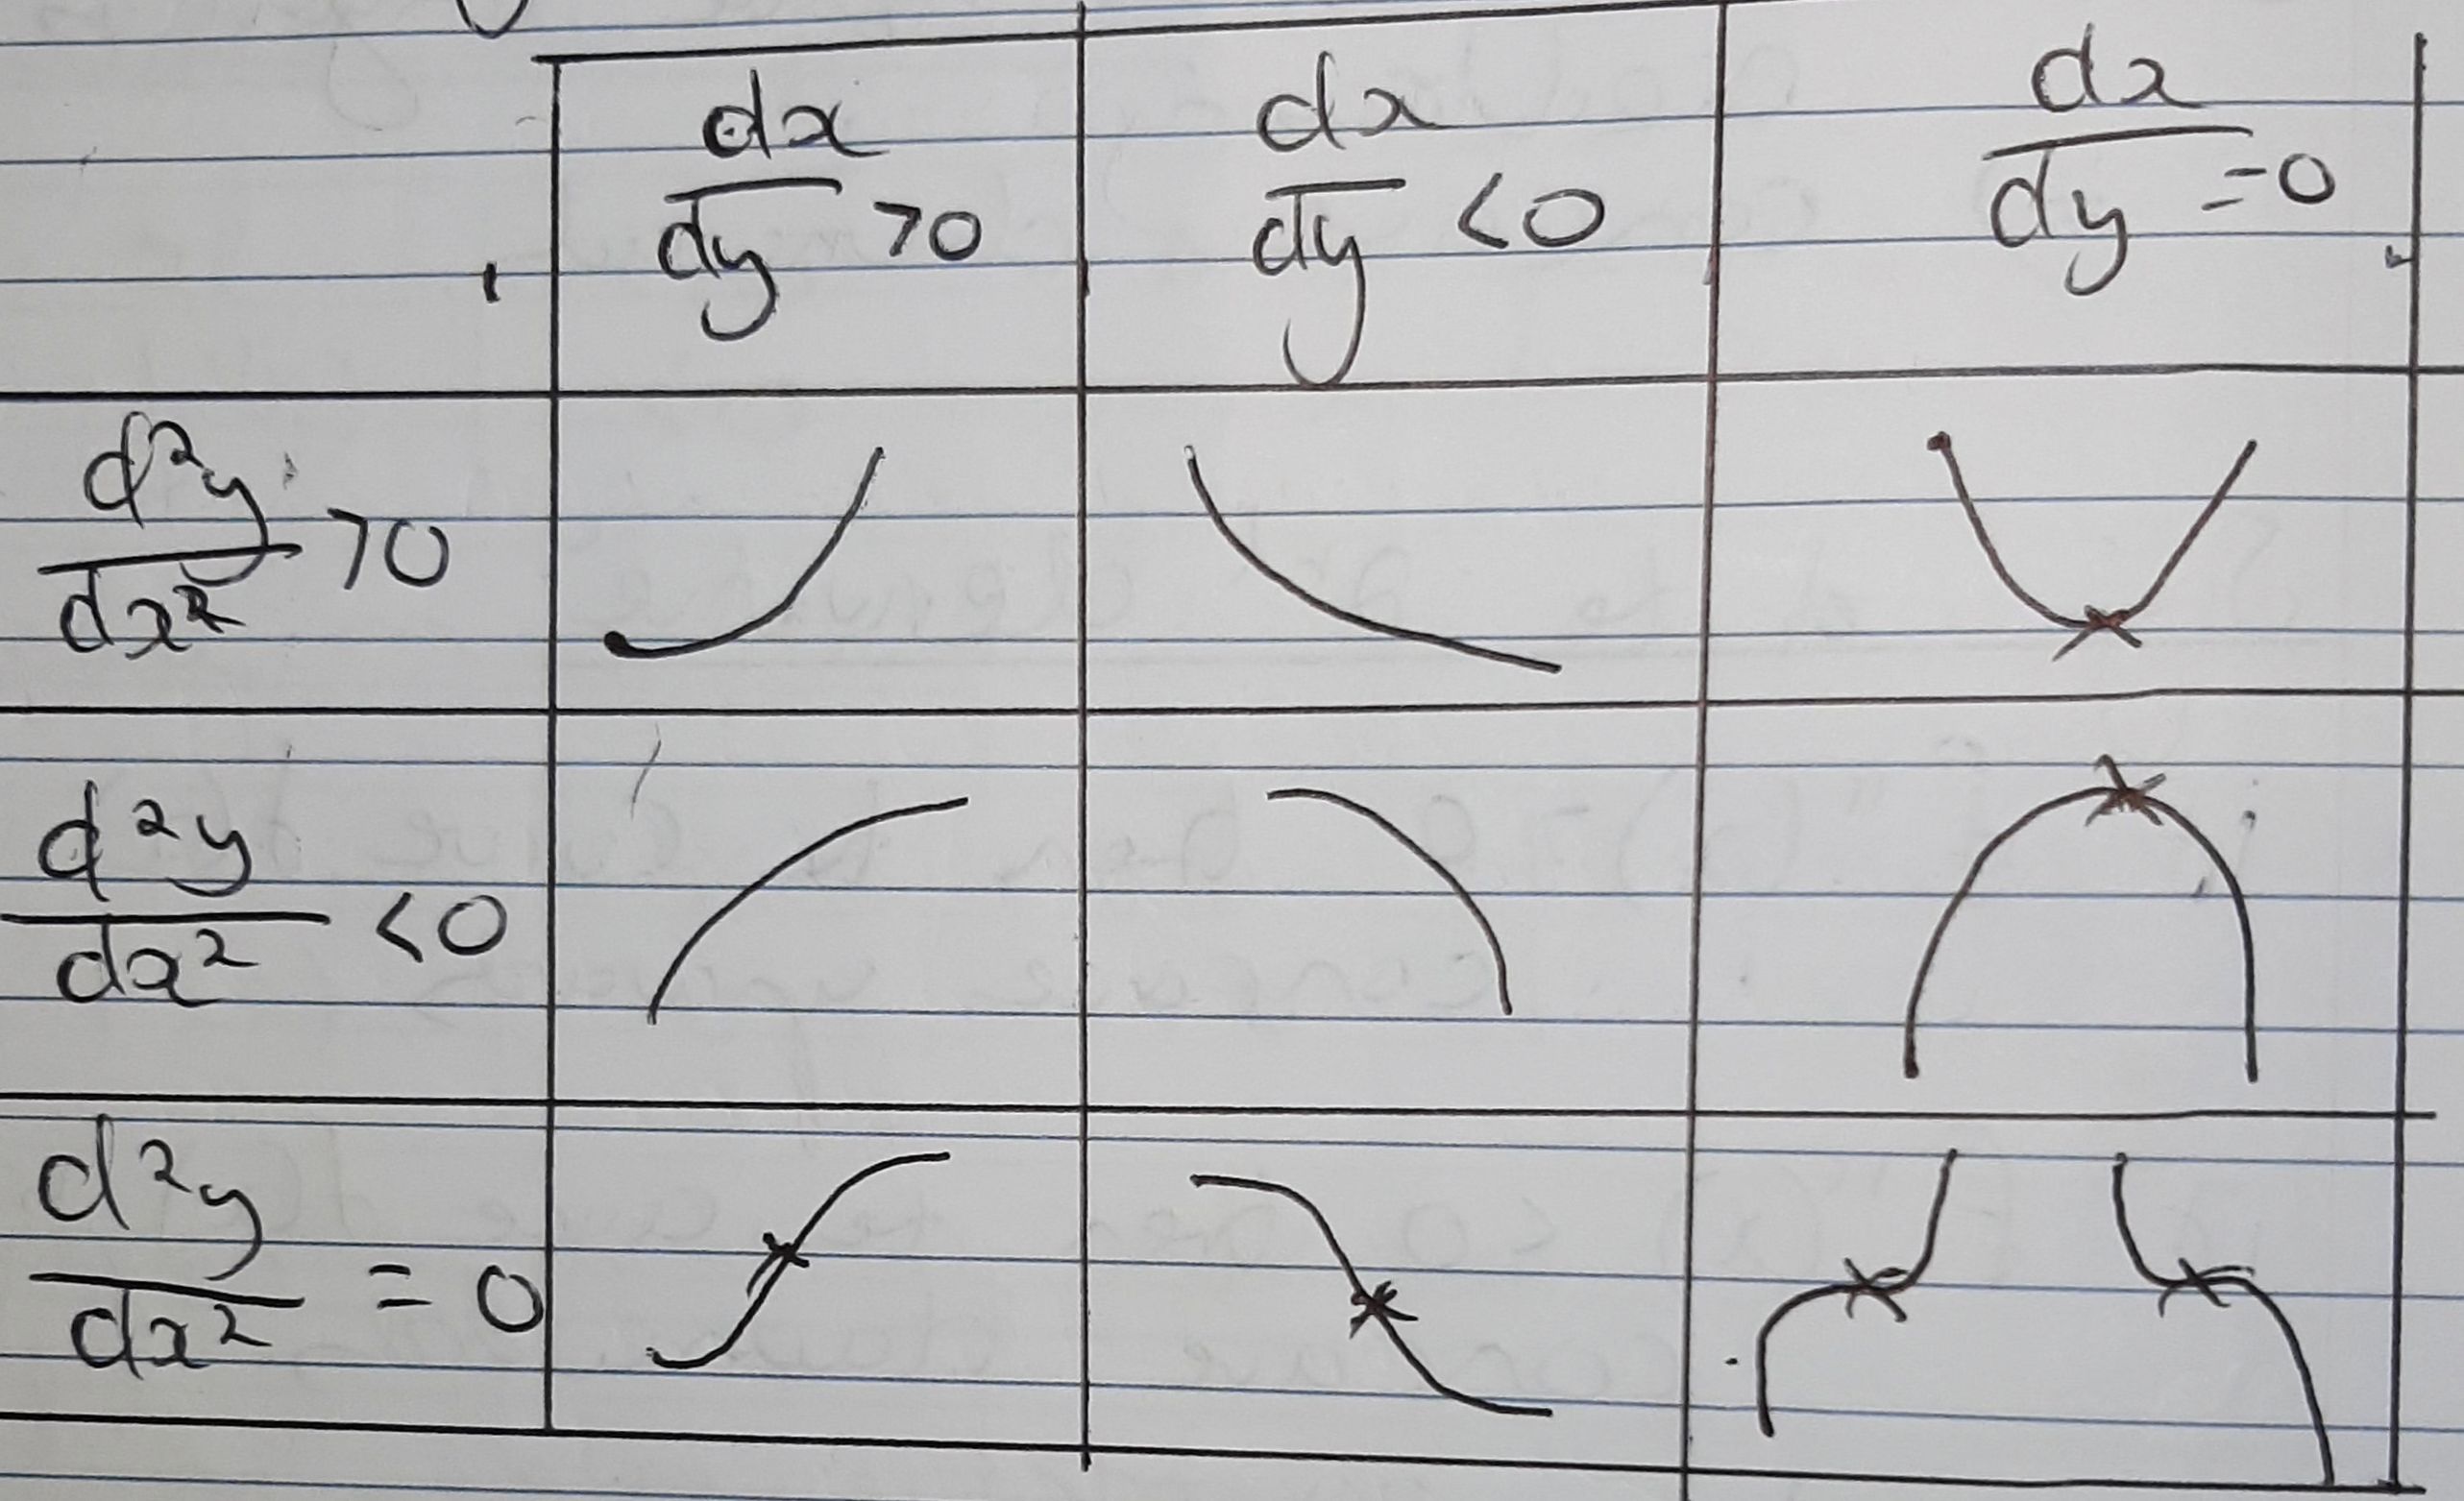 dx/dy >0 dx/dy <0 dx/dy =0
d²y/dx² >0
d²y/dx² <0
d²y/dx² = 0